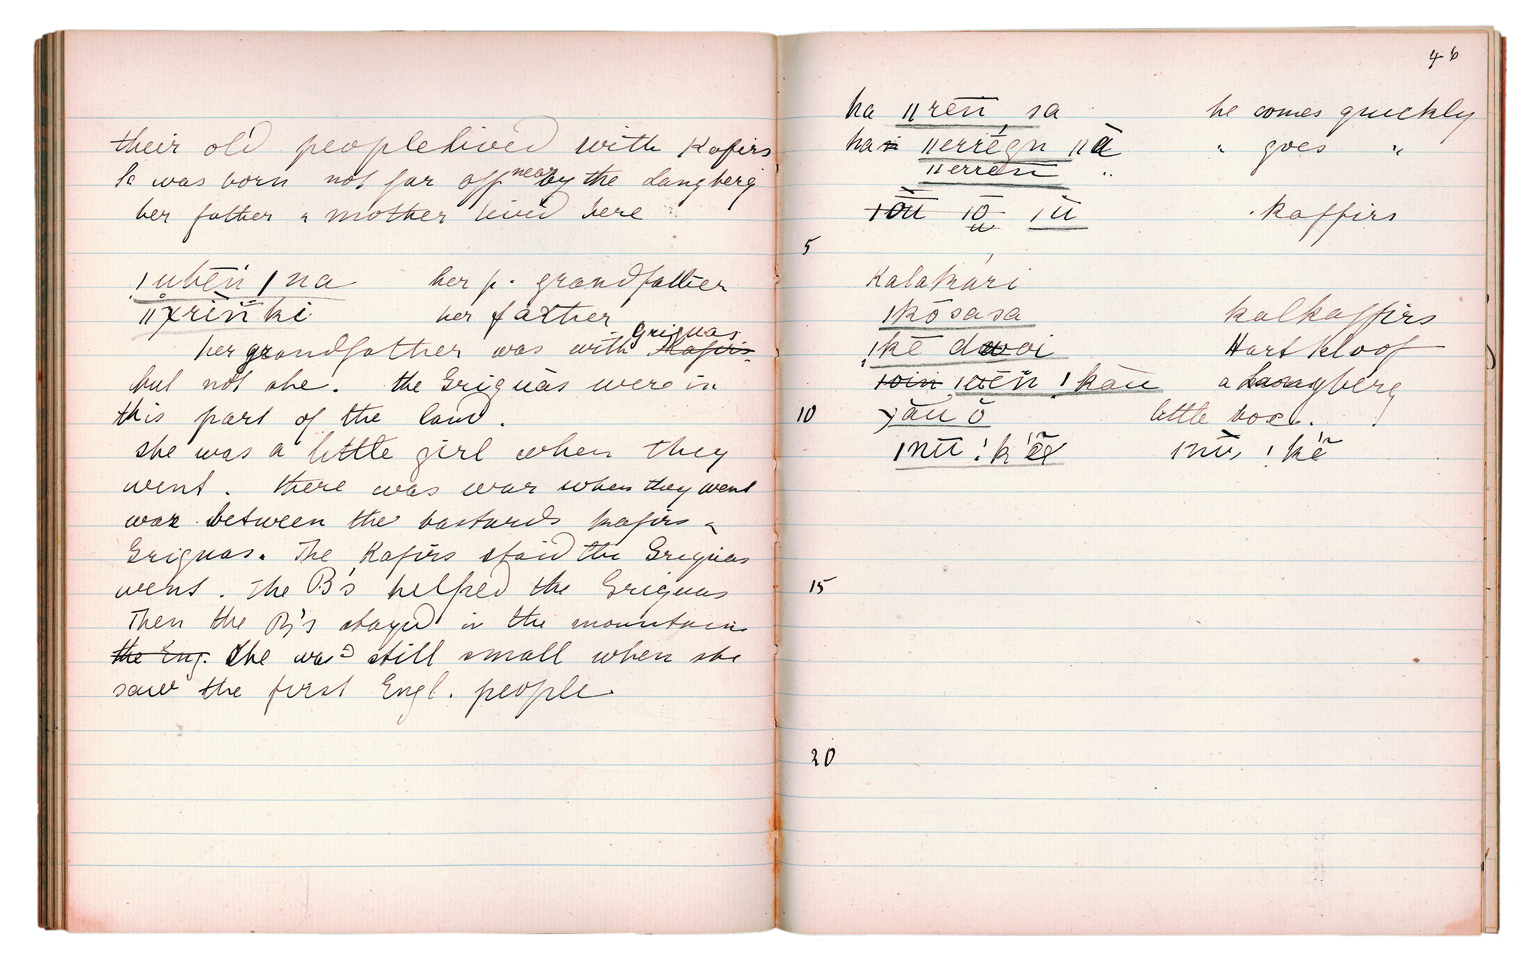 their old people lived with Kafirs
K was born not far off near by the Langberg
her father & mother lived here
her p. grandfather
her father
her grandfather was with Griquas Kafirs
but not she. the Griquas were in
this part of the land.
she was a little girl when they
went. there was war when they went
war between the bastards kafirs &
Griquas. The Kafirs staid the Griquas
went. The B's helped the Griquas
Then the B's stayed in the mountains
the Eng. She was still small when she
saw the first Engl. people
46
ha ǁrēn̄ sa he comes quickly
ǁā " goes "
ǁerrēn̄ "
ǀū kaffirs
5
Kalakári
ǀkōsasa kalkaffirs
Hart kloof
ǃkāu a Langberg
10 little box.
ǀnū ǃké
15
20